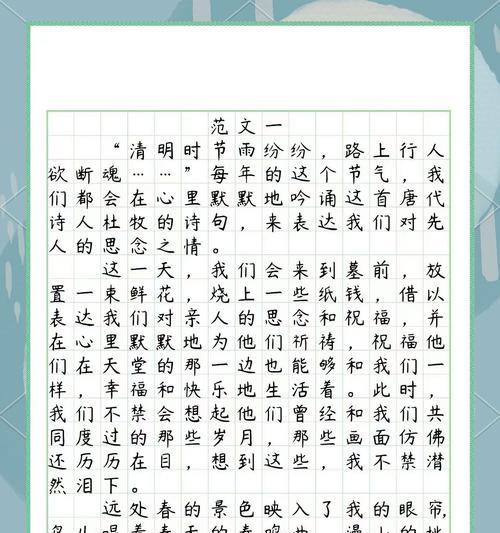 范文一
“清明时节雨纷纷，路上行人
欲断魂……”每年的这个节气，我
们都会在心里默默地吟诵这首唐代
诗人杜牧的诗句，来表达我们对先
人的思念之情。
这一天，我们会来到墓前，放
置一束鲜花，烧上一些纸钱，借以
表达我们对亲人的思念和祝福，并
在心里默默地为他们祈祷，祝福他
们在天堂的那一边也能够和我们一
样，幸福和快乐地生活着。此时，
我们不禁会想起他们曾经和我们共
同度过的那些岁月，那些画面仿佛
还历历在目，想到这些，我不禁潸
然泪下。
远处春的景色映入了我的眼帘，